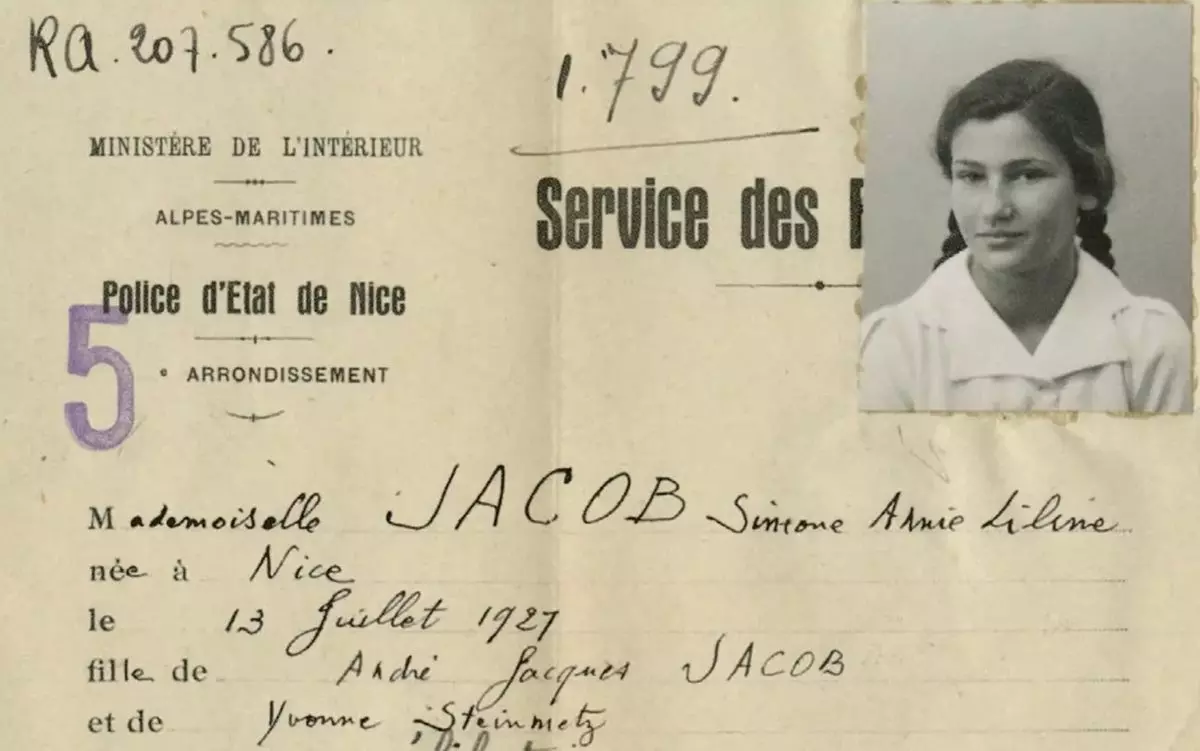 RA. 207.586.
1.799.
MINISTÈRE DE L'INTÉRIEUR
ALPES-MARITIMES
Service des
Police d'Etat de Nice
5
e ARRONDISSEMENT
Mademoiselle JACOB Simone Annie Liline
née à Nice
le 13 Juillet 1927
fille de André Jacques JACOB
et de Yvonne Steinmetz